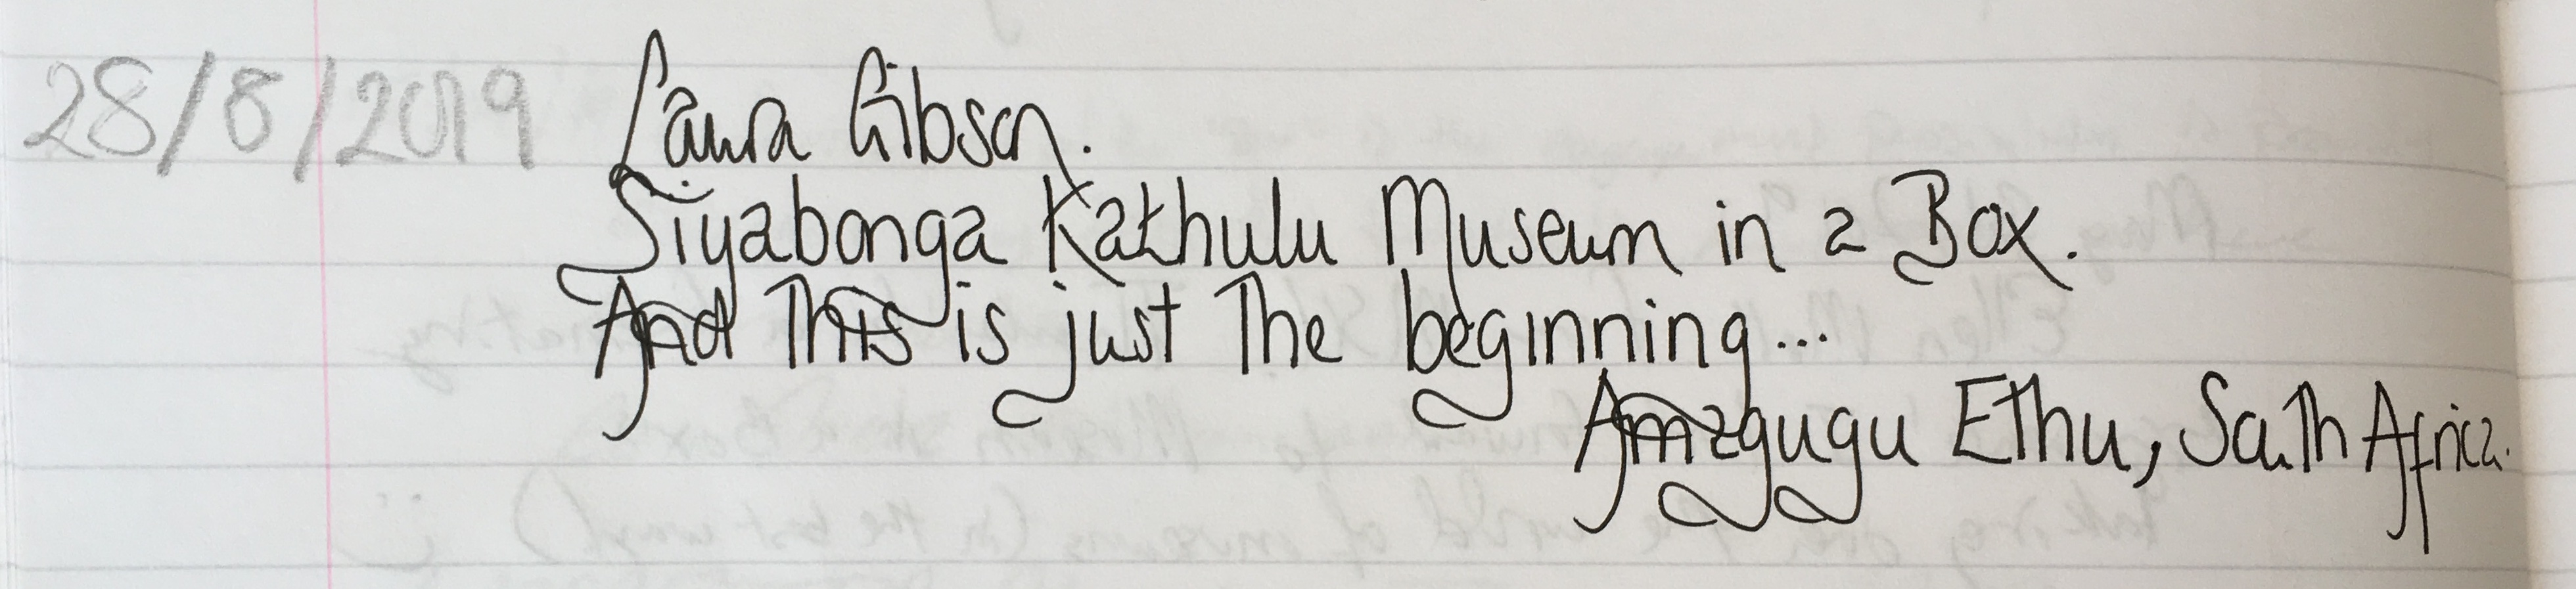 28/8/2019 Laura Gibson.
Siyabonga Kathulu Museum in a Box.
And This is just The beginning...
Amagugu Ethu, South Africa.